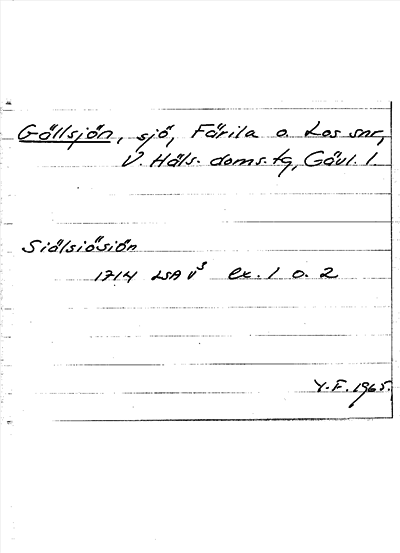 Gällsjön, sjö, Färila o. Los snr,
V. Häls. doms. tg, Gävl. l
Siälsiösiön
1714 LSA V5 ex. 1 o. 2
Y.F. 1965.